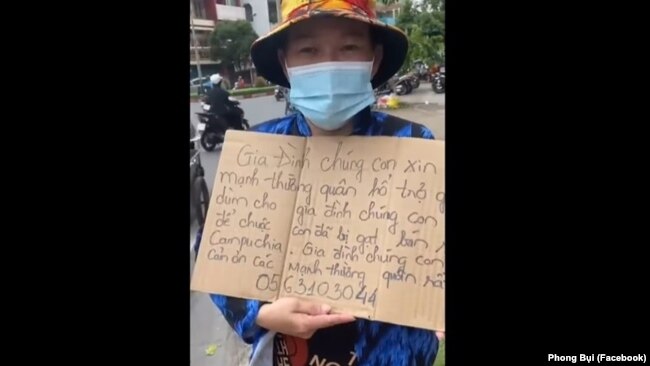 Gia Đình chúng con xin
mạnh thường quân hổ trợ
dùm cho gia đình chúng con
để chuộc con đã bị gạt bán
Campuchia. Gia đình chúng con
cản ơn các mạnh thường quân
0563103044
Phong Bụi (Facebook)